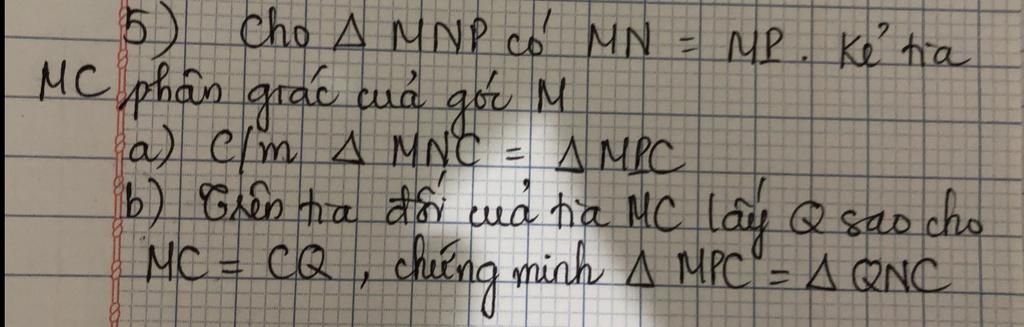 5) Cho Δ MNP có MN = MP. Kẻ tia
MC phân giác cuả góc M
a) C/m Δ MNC = Δ MPC
b) Trên tia đối cuả tia MC lấy Q sao cho
MC = CQ, chứng minh Δ MPC = Δ QNC